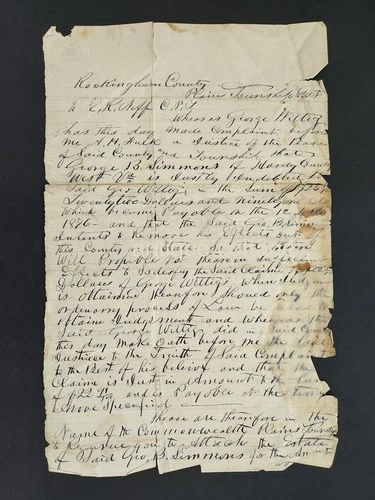 Rockingham County
Plains Township to wit
To E. K. Neff C.P.T
Whereas George Wittig
has this day Made Complaint before
me a Justice of the Peace
of Said County and Township that
George B. Simmons of Hardy County
West Va is Justly Indebted to
Said Geo Wittig in the Sum of
Twenty two Dollars and
Which become Payable on the 12
1876 and that the Said Geo. B. Simmons
Intends to Remove his Effects out of
this County and State So that
Will Probable not therein
Effects to Satisfy the Said Claime
Dollars of George Wittigs When Judgment
is obtained therefor Should only the
ordenary process of Law be
obtaine Judgement and Whereas the
Said George Wittig did in Said County
this day Make Oath before me the Said
Justice to the Truth of Said Complaint
to the Best of his belief and that the
Claime is Just in Amount to the Sum
of $22 and is Payable at the time
above Specified
These are therefore in the
Name of the Commonwealth Plains Township
to Require you to Attach the Estate
of Said Geo, B. Simmons for the Amount